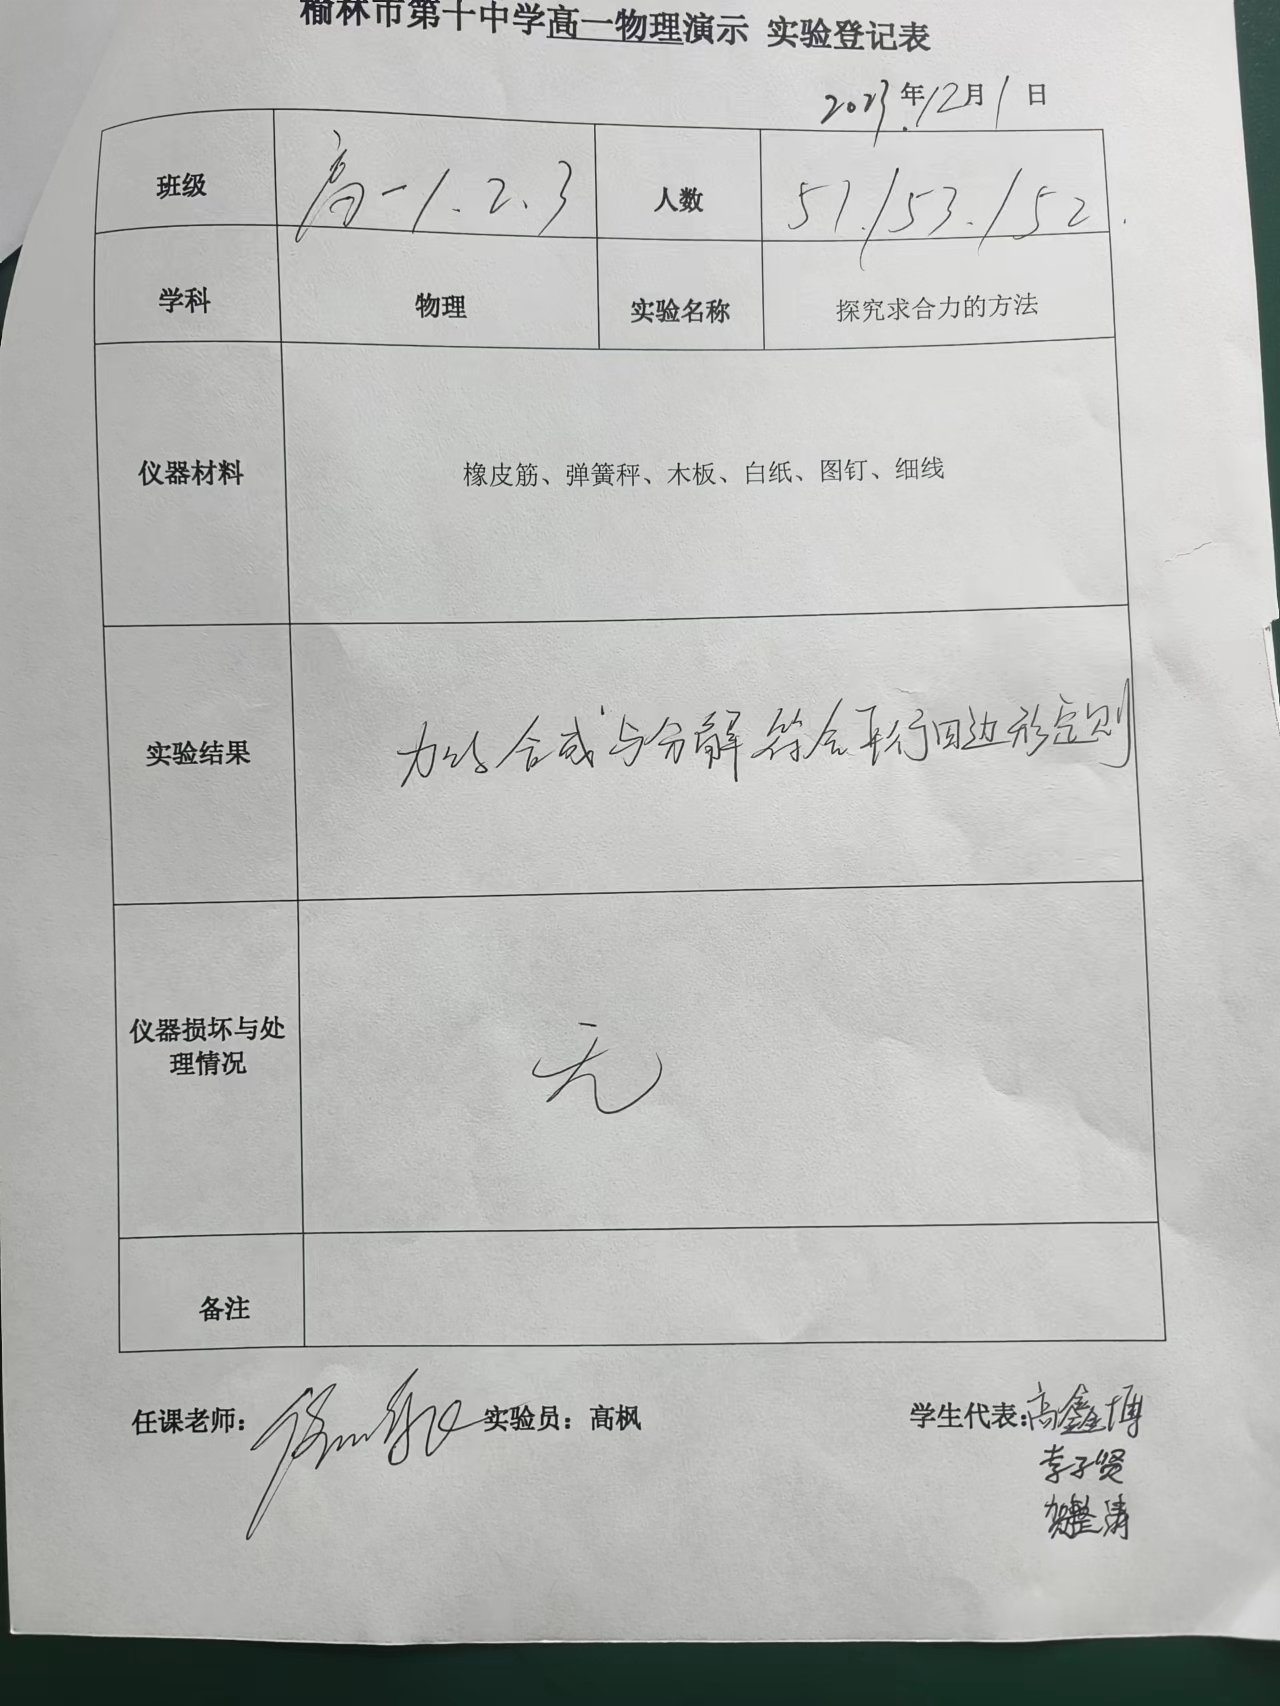 榆林市第十中学高一物理演示 实验登记表
2023年12月1日
班级 高一1.2.3 人数 51./53./52.
学科 物理 实验名称 探究求合力的方法
仪器材料 橡皮筋、弹簧秤、木板、白纸、图钉、细线
实验结果 力的合成与分解符合平行四边形定则
仪器损坏与处
理情况 无
备注
任课老师: 实验员：高枫 学生代表:高鑫博
李子贤
贺整涛